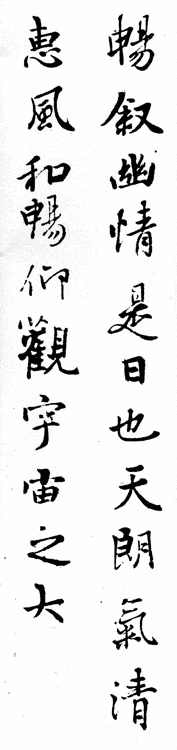 暢叙幽情是日也天朗氣清
惠風和暢仰觀宇宙之大